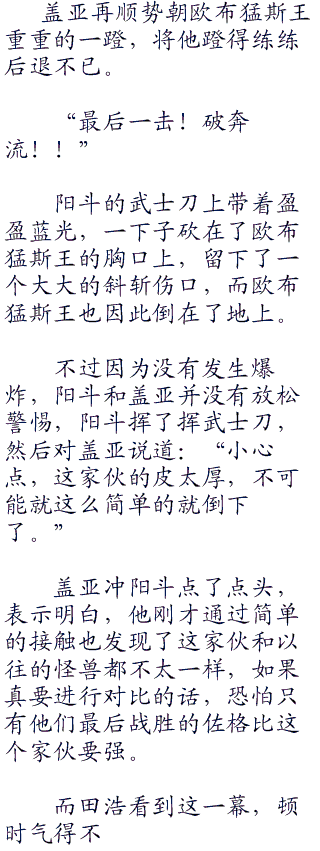 盖亚再顺势朝欧布猛斯王
重重的一蹬，将他蹬得练练
后退不已。
“最后一击！破奔
流！！”
阳斗的武士刀上带着盈
盈蓝光，一下子砍在了欧布
猛斯王的胸口上，留下了一
个大大的斜斩伤口，而欧布
猛斯王也因此倒在了地上。
不过因为没有发生爆
炸，阳斗和盖亚并没有放松
警惕，阳斗挥了挥武士刀，
然后对盖亚说道：“小心
点，这家伙的皮太厚，不可
能就这么简单的就倒下
了。”
盖亚冲阳斗点了点头，
表示明白，他刚才通过简单
的接触也发现了这家伙和以
往的怪兽都不太一样，如果
真要进行对比的话，恐怕只
有他们最后战胜的佐格比这
个家伙要强。
而田浩看到这一幕，顿
时气得不